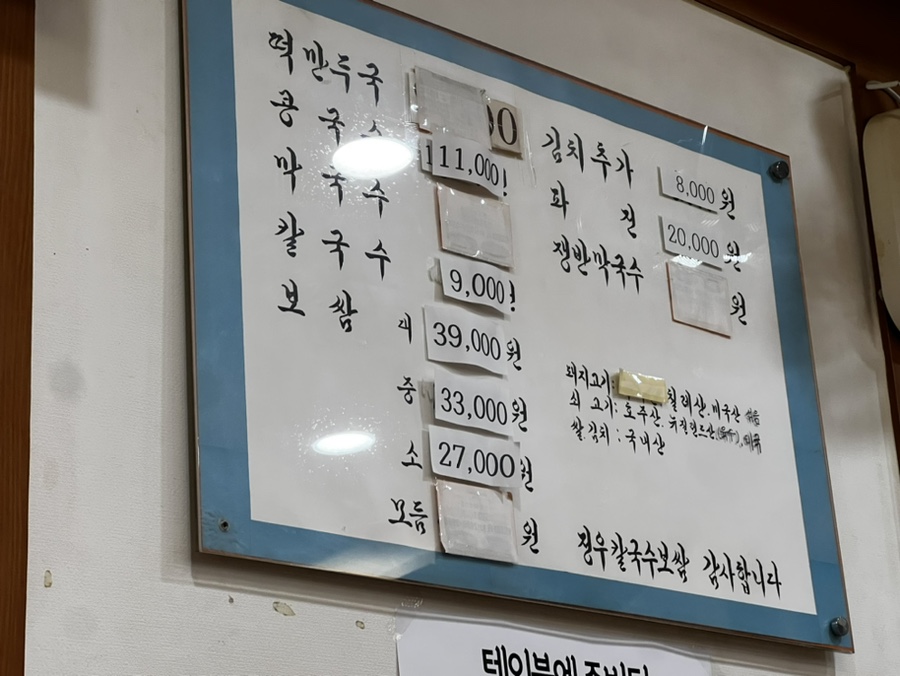 떡만두국
콩국수 111,000
막국수
칼국수 9,000
보쌈 대 39,000원
중 33,000원
소 27,000원
모듬 원
김치추가 8,000원
파전 20,000원
쟁반막국수 원
돼지고기: 칠레산.미국산
쇠고기: 호주산.
쌀.김치: 국내산
정우칼국수보쌈 감사합니다
테이블에